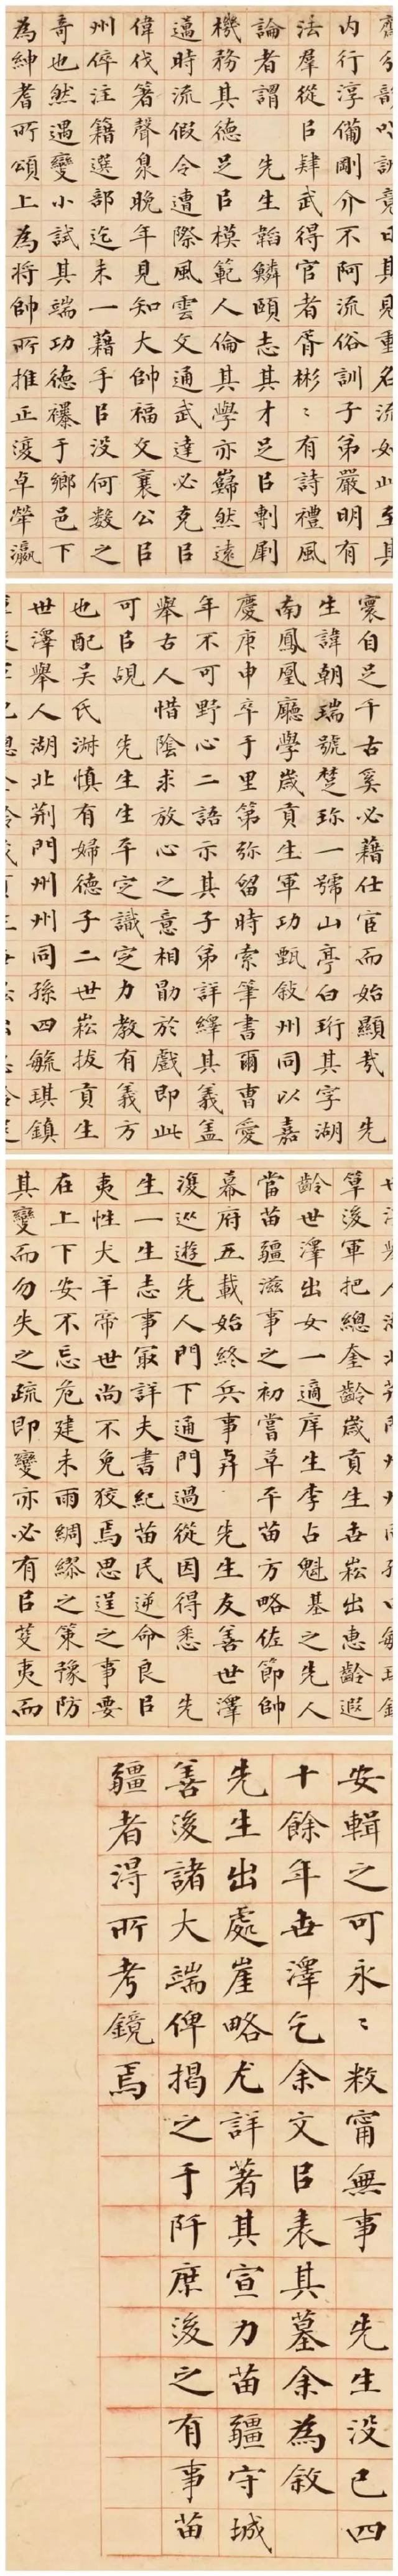 内行淳備剛介不阿流俗訓子弟嚴明有
法羣從㠯肆武得官者胥彬〻有詩禮風
論者謂 先生韜鱗頤志其才足㠯剸劇
機務其德足㠯模範人倫其學亦巋然遠
邁時流假令遭際風雲文通武達必克㠯
偉伐箸聲臮晚年見知大帥福文襄公㠯
州倅注籍選部迄未一藉手㠯没何數之
奇也然遇變小試其端功德襮于鄉邑下
為紳耆所頌上為将帥所推正澓卓犖瀛
寰自足千古奚必藉仕宦而始顯㢤 先
生諱朝瑞號楚珎一號山亭白珩其字湖
南鳳凰廳學歲貢生軍功甄敘州同以嘉
慶庚申卒于里第弥留時索筆書爾曹愛
年不可野心二語示其子弟詳繹其義盖
舉古人惜陰求放心之意相勖於戲即此
可㠯覘 先生生平定識定力教有義方
也配吴氏淑慎有婦德子二世崧拔貢生
世澤舉人湖北荆門州州同孫四毓琪鎮
筸後軍把總奎齡歲貢生世崧出惠齡遐
齡世澤出女一適庠生李占魁基之先人
當苗疆滋事之初嘗草平苗方略佐節帥
幕府五載始終兵事 先生友善世澤
澓巡遊先人門下通門過從因得悉 先
生一生志事冣詳夫書紀苗民逆命良㠯
夷性犬羊帝世尚不免狡焉思逞之事要
在上下安不忘危建未雨綢繆之策豫防
其變而勿失之疏即變亦必有㠯芟夷而
安輯之可永〻敉甯無事 先生没已四
十餘年世澤乞余文㠯表其墓余為敘
先生出處崖略尤詳著其宣力苗疆守城
善後諸大端俾揭之于阡庶後之有事苗
疆者得所考鏡焉